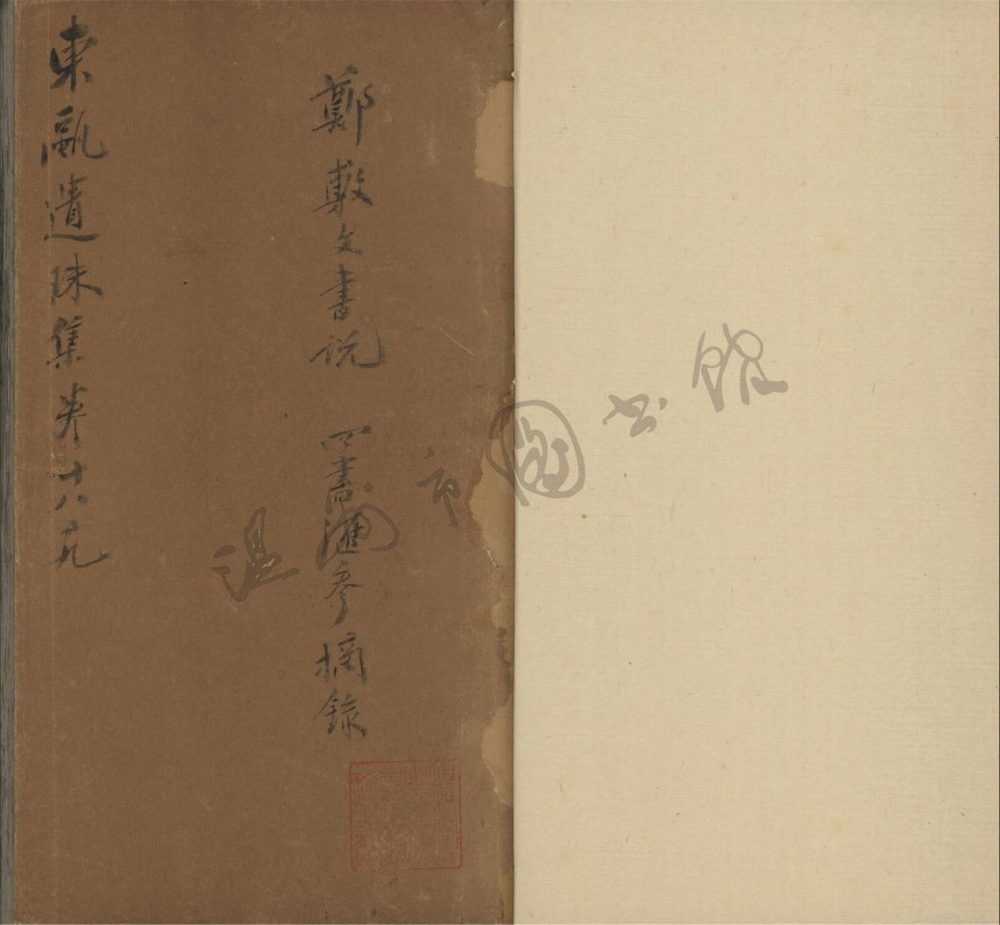 鄭敷文書說 四書滙參摘錄
東甌遺珠集卷十八九
温州市圖书館